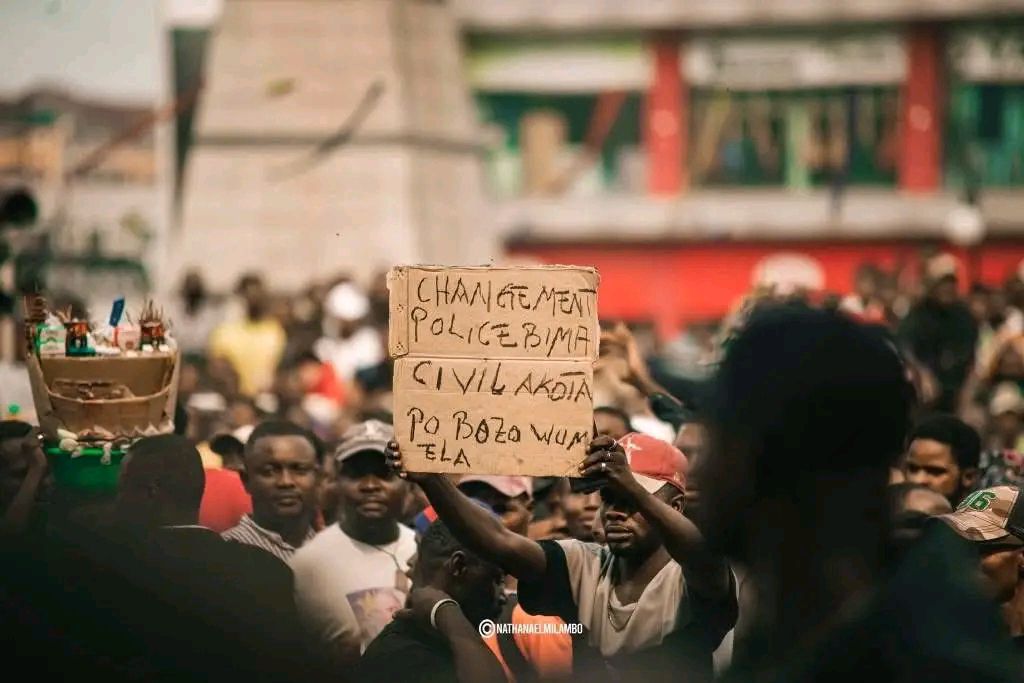 CHANGEMENT
POLICE BIMA
CIVIL AKOTA
PO BOZO WUM
ELA
©NATHANAELMILAMBO